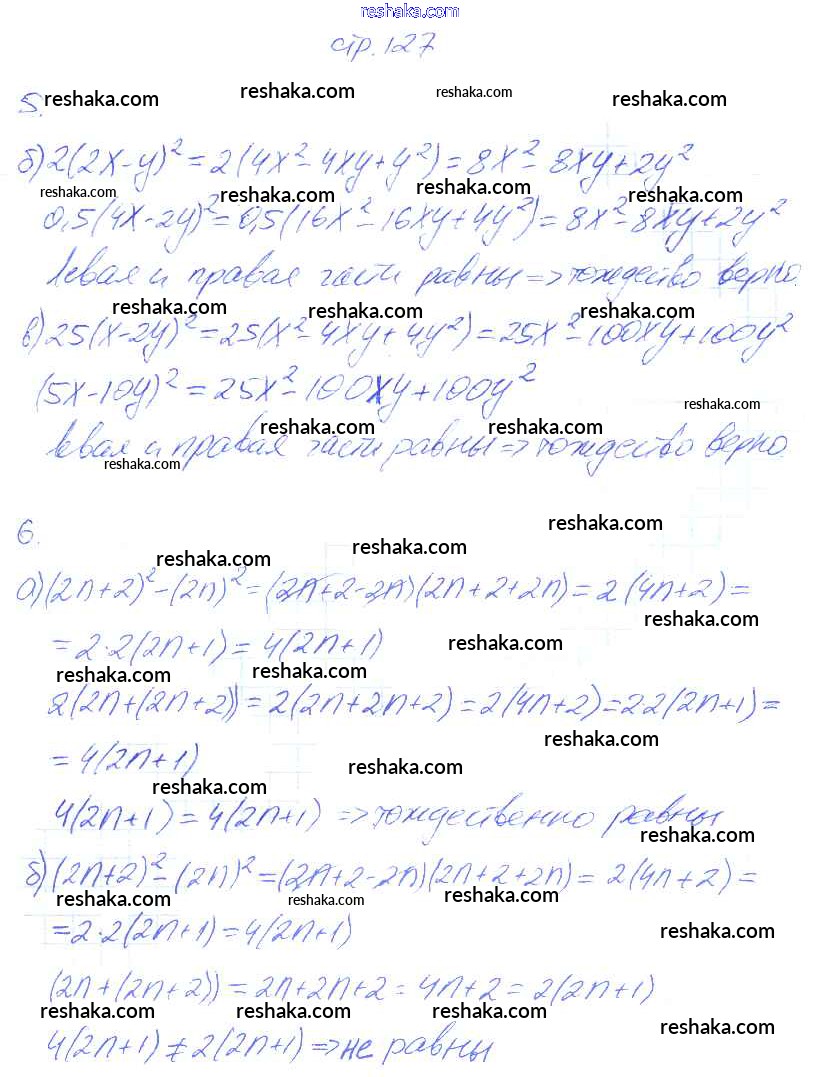 reshaka.com
стр. 127
5. reshaka.com reshaka.com reshaka.com reshaka.com
б) 2(2x-y)² = 2(4x² - 4xy + y²) = 8x² - 8xy + 2y²
reshaka.com reshaka.com reshaka.com reshaka.com
0,5(4x-2y)² = 0,5(16x² - 16xy + 4y²) = 8x² - 8xy + 2y²
Левая и правая части равны => тождество верно.
reshaka.com reshaka.com reshaka.com
в) 25(x-2y)² = 25(x² - 4xy + 4y²) = 25x² - 100xy + 100y²
(5x-10y)² = 25x² - 100xy + 100y²
reshaka.com reshaka.com reshaka.com
Левая и правая части равны => тождество верно.
reshaka.com
6. reshaka.com
reshaka.com reshaka.com
а) (2n+2)² - (2n)² = (2n+2-2n)(2n+2+2n) = 2(4n+2) =
reshaka.com
= 2·2(2n+1) = 4(2n+1) reshaka.com
reshaka.com reshaka.com
2(2n+(2n+2)) = 2(2n+2n+2) = 2(4n+2) = 2·2(2n+1) =
reshaka.com
= 4(2n+1) reshaka.com
reshaka.com
4(2n+1) = 4(2n+1) => тождественно равны
reshaka.com
б) (2n+2)² - (2n)² = (2n+2-2n)(2n+2+2n) = 2(4n+2) =
reshaka.com reshaka.com reshaka.com
= 2·2(2n+1) = 4(2n+1) reshaka.com
(2n+(2n+2)) = 2n+2n+2 = 4n+2 = 2(2n+1)
reshaka.com reshaka.com reshaka.com reshaka.com
4(2n+1) ≠ 2(2n+1) => не равны